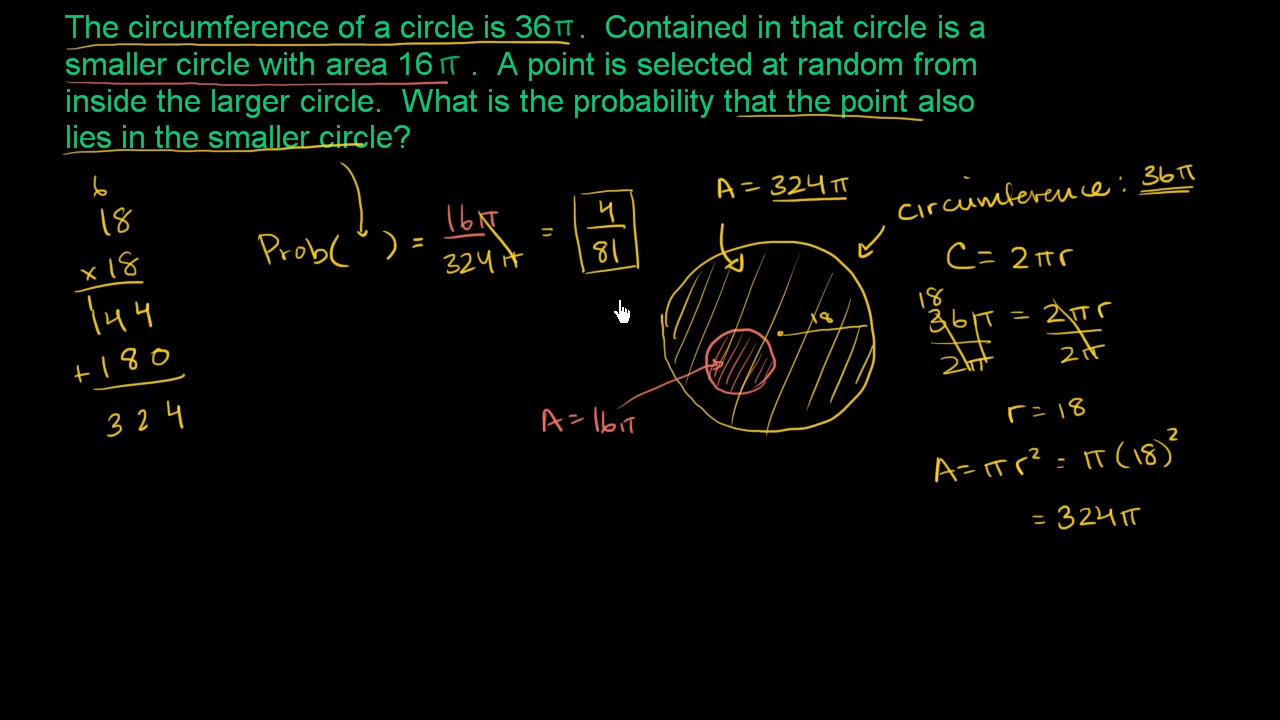 The circumference of a circle is 36π. Contained in that circle is a
smaller circle with area 16π. A point is selected at random from
inside the larger circle. What is the probability that the point also
lies in the smaller circle?
6
18
x18
144
+180
324
Prob( ) = 16π/324π = 4/81
A = 324π
circumference: 36π
18
A = 16π
C = 2πr
18
36π/2π = 2πr/2π
r = 18
A = πr² = π(18)²
= 324π